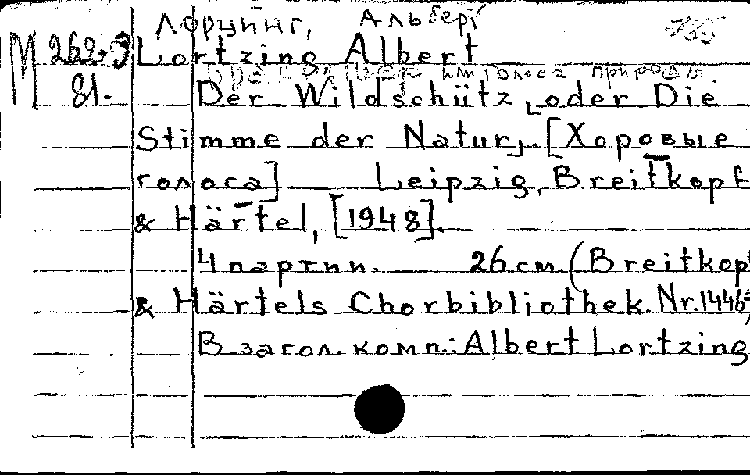 Лорцинг, Альберт
М 262-3 Lortzing Albert
81.
Der Wildschütz, oder Die
Stimme der Natur, [Хоровые
голоса] Leipzig, Breitkopf
& Härtel, [1948].
4 партии. 26 см (Breitkopf
& Härtels Chorbibliothek. Nr.1446)
В загол. комп.: Albert Lortzing